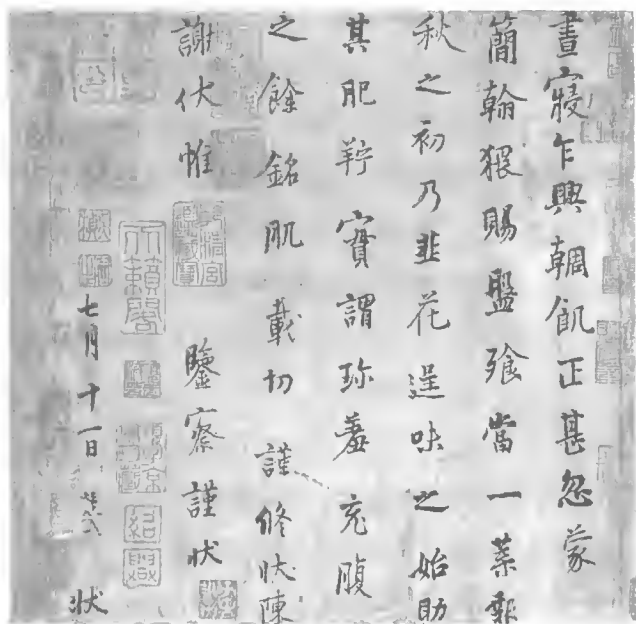 晝寢乍興輖飢正甚忽蒙
簡翰猥賜盤飧當一葉報
秋之初乃韭花逞味之始助
其肥羜實謂珍羞充腹
之餘銘肌載切謹修狀陳
謝伏惟 鑒察謹狀
乾清宮鑒藏寶
天籟閣
紹興
七月十一日 狀